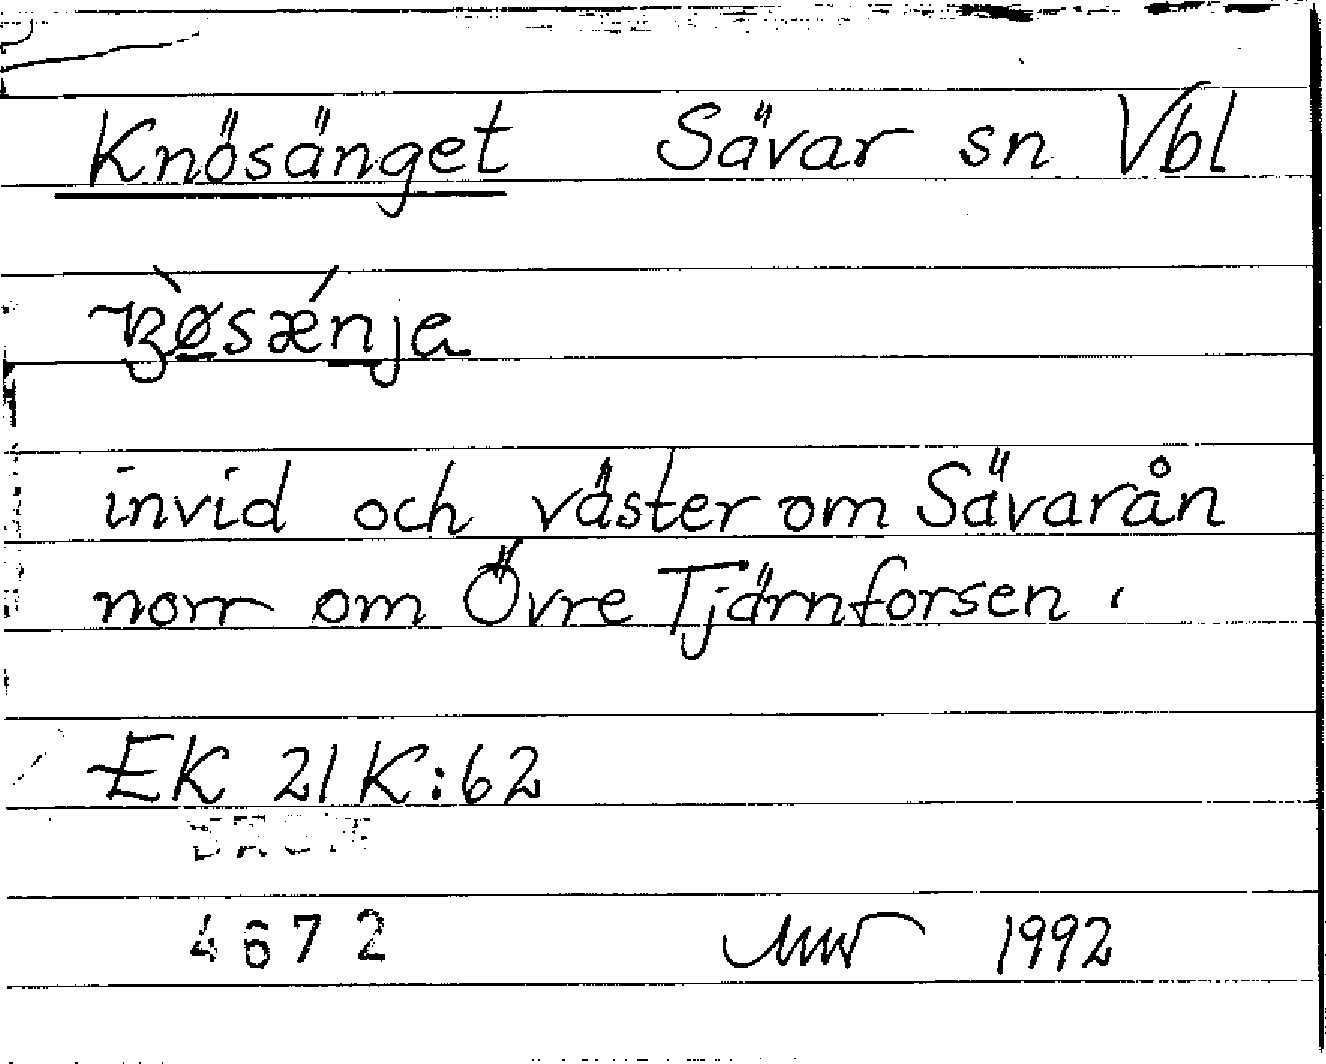 Knösänget Sävar sn Vbl
invid och väster om Sävarån
norr om Övre Tjärnforsen.
EK 21K:62
4672 1992